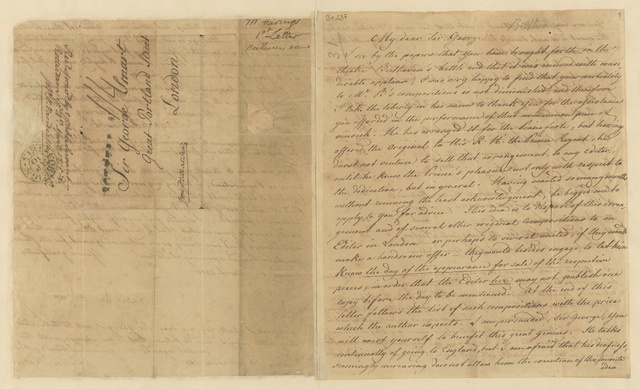 Mr Härings
1st Letter
Beethoven's
Sir George Smart
Great Portland Street
London
Be 234
1
My dear Sir George.
I see by the papers that you have brought forth in the
theatre Beethoven's battle and that it was received with consi-
derable applause. I was very happy to find that your partiality
to Mr. B's compositions is not diminished and therefore
I take the liberty in his name to thank you for the assistance
you afforded in the performance of that uncommon piece of
musick. He has arranged it for the pianoforte, but having
offered the original to his R. H. the Prince Regent, he
durst not venture to sell that arrangement to any Editor,
until he knew the Prince's pleasure, not only with respect to
the dedication, but in general. Having waited so many months
without receiving the least acknowledgment, he begged me to
apply to you for advice. His idea is to dispose of this arran-
gement and of several other original Compositions to an
Editor in London or perhaps to several united, if they would
make a handsome offer they would besides engage, to let him
know the day of the appearance for sale of the respective
pieces, in order that the Editor here may not publish one
copy before the day to be mentioned. At the end of this
letter follows the list of such compositions with the price
which the author expects. I am persuaded, Sir George, you
will exert yourself to benefit this great genius. He talks
continually of going to England, but I am afraid that his deafness,
seemingly increasing does not allow him the execution of this favorite
idea